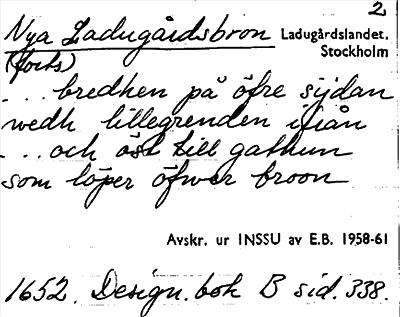 2
Nya Ladugårdsbron Ladugårdslandet,
(forts) Stockholm
... bredhen på öfre sijdan
wedh lillegrenden ifrån
... och öst till gathun
som löper öfwer broon
Avskr. ur INSSU av E.B. 1958-61
1652. Design. bok B sid. 338.